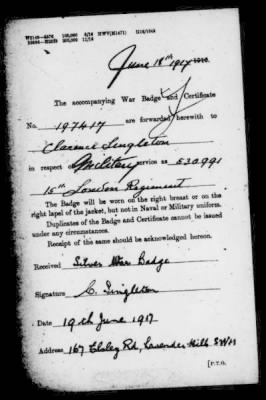 June 18th 1917
The accompanying War Badge and Certificate
No. 197417 are forwarded herewith to
Clarence Singleton
in respect of Military service as 530991
15th London Regiment
The Badge will be worn on the right breast or on
right lapel of the jacket, but not in Naval or Military uniform.
Duplicates of the Badge and Certificate cannot be issued
under any circumstances.
Receipt of same should be acknowledged hereon.
Received Silver War Badge
Signature C. Singleton
Date 19th June 1917
Address 167 Elsley Rd, Lavender Hill SW11
[P.T.O.